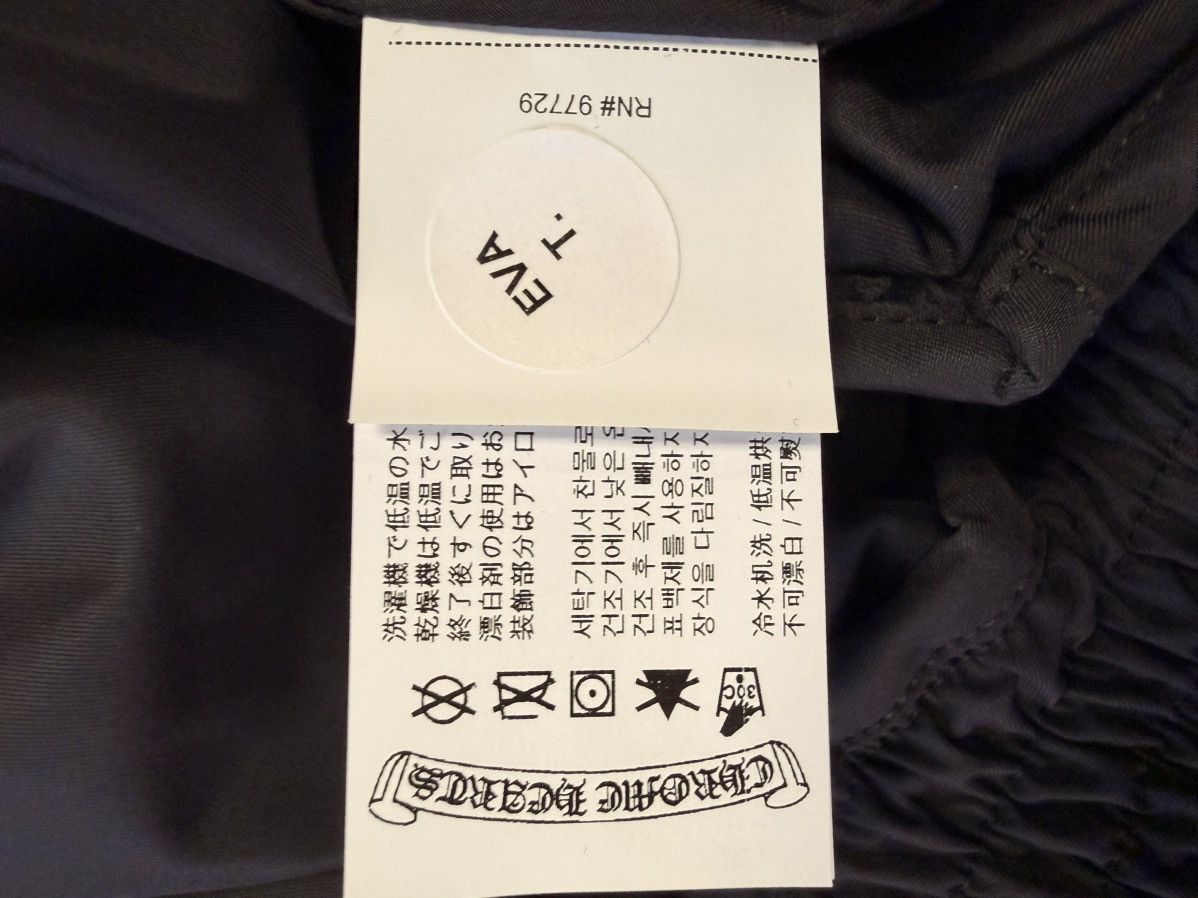 RN# 97729
EVA
T.
洗濯機で低温の水
乾燥機は低温でご
終了後すぐに取り
漂白剤の使用はお
装飾部分はアイロ
세탁기에서 찬물로
건조기에서 낮은 온
건조 후 즉시 빼내
표백제를 사용하지
장식을 다림질하지
冷水机洗 / 低温烘
不可漂白 / 不可熨
30C
CHROME HEARTS